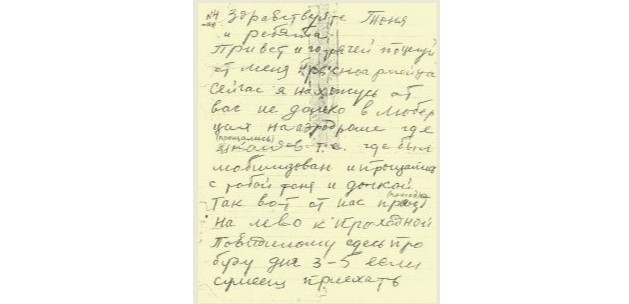 Здравствуйте Тоня
и ребята.
Привет и горячей поцелуй
от меня Красноармейца
Сейчас я нахожусь от
вас не далеко в Любер
цах на аэродроме где
(прощались)
т.е. где был
мобилизован и прощался
с тобой Тоня и дочкой
Так вот от нас
на лево к проходной
Повидимому здесь про
буду дня 3-5 если
сумеешь приехать